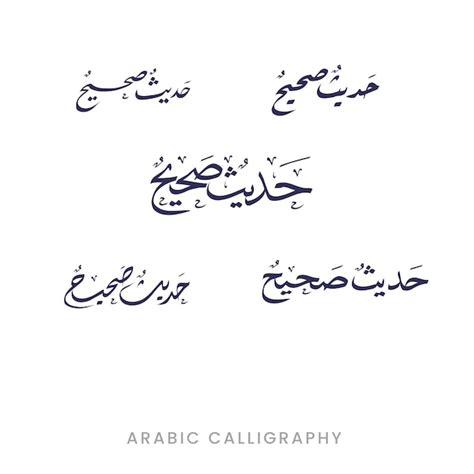 حَديثٌ صَحيحٌ
حَديثٌ صَحيحٌ
حَديثٌ صَحيحٌ
حَديثٌ صَحيحٌ
حَديثٌ صَحيحٌ
ARABIC CALLIGRAPHY